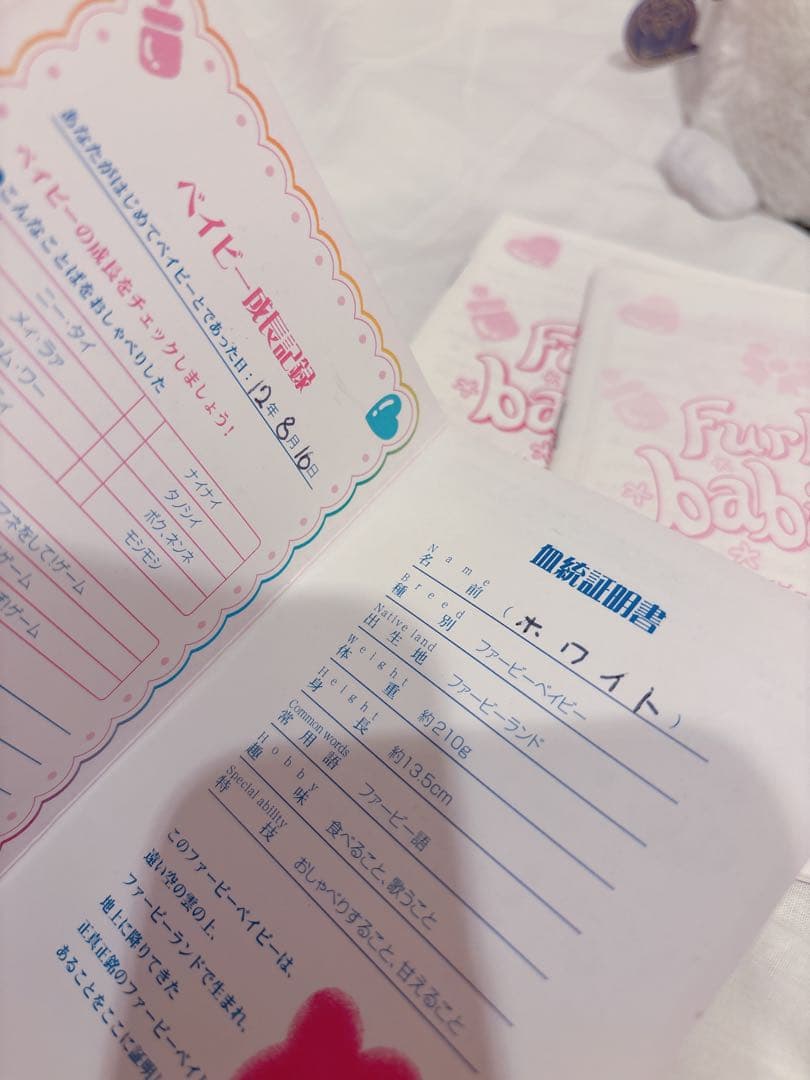 ベイビー成長記録
あなたがはじめてベイビーとであった日：12年8月16日
ベイビーの成長をチェックしましょう！
こんなことばをおしゃべりした
ニー・タイ
ナイナイ
メイ・ラア
タノシイ
ム・ワー
ボク、ネンネ
モシモシ
マネをして！ゲーム
ゲーム
ゲーム
血統証明書
Name
名前（ホワイト）
Breed
種別 ファービーベイビー
Native land
出生地 ファービーランド
Weight
体重 約210g
Height
身長 約13.5cm
Common words
常用語 ファービー語
Hobby
趣味 食べること、歌うこと
Special ability
特技 おしゃべりすること、甘えること
このファービーベイビーは、
遠い空の雲の上、
ファービーランドで生まれ、
地上に降りてきた
正真正銘のファービーベイビ
あることをここに証明し
Fur
ba
Furb
bab